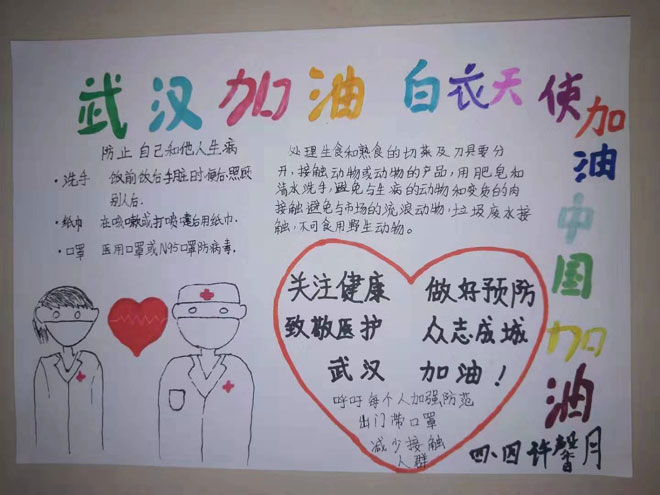 武汉加油 白衣天使加油 中国加油
防止自己和他人生病
·洗手 饭前饭后手脏时便后.照顾
别人后.
·纸巾 在咳嗽或打喷嚏后用纸巾.
·口罩 医用口罩或N95口罩防病毒.
处理生食和熟食的切菜及刀具要分
开,接触动物或动物的产品,用肥皂和
清水洗手,避免与生病的动物和变质的肉
接触避免与市场的流浪动物,垃圾废水接
触,不可食用野生动物。
关注健康 做好预防
致敬医护 众志成城
武汉 加油!
呼吁每个人加强防范
出门带口罩
减少接触
人群
四、四 许馨月